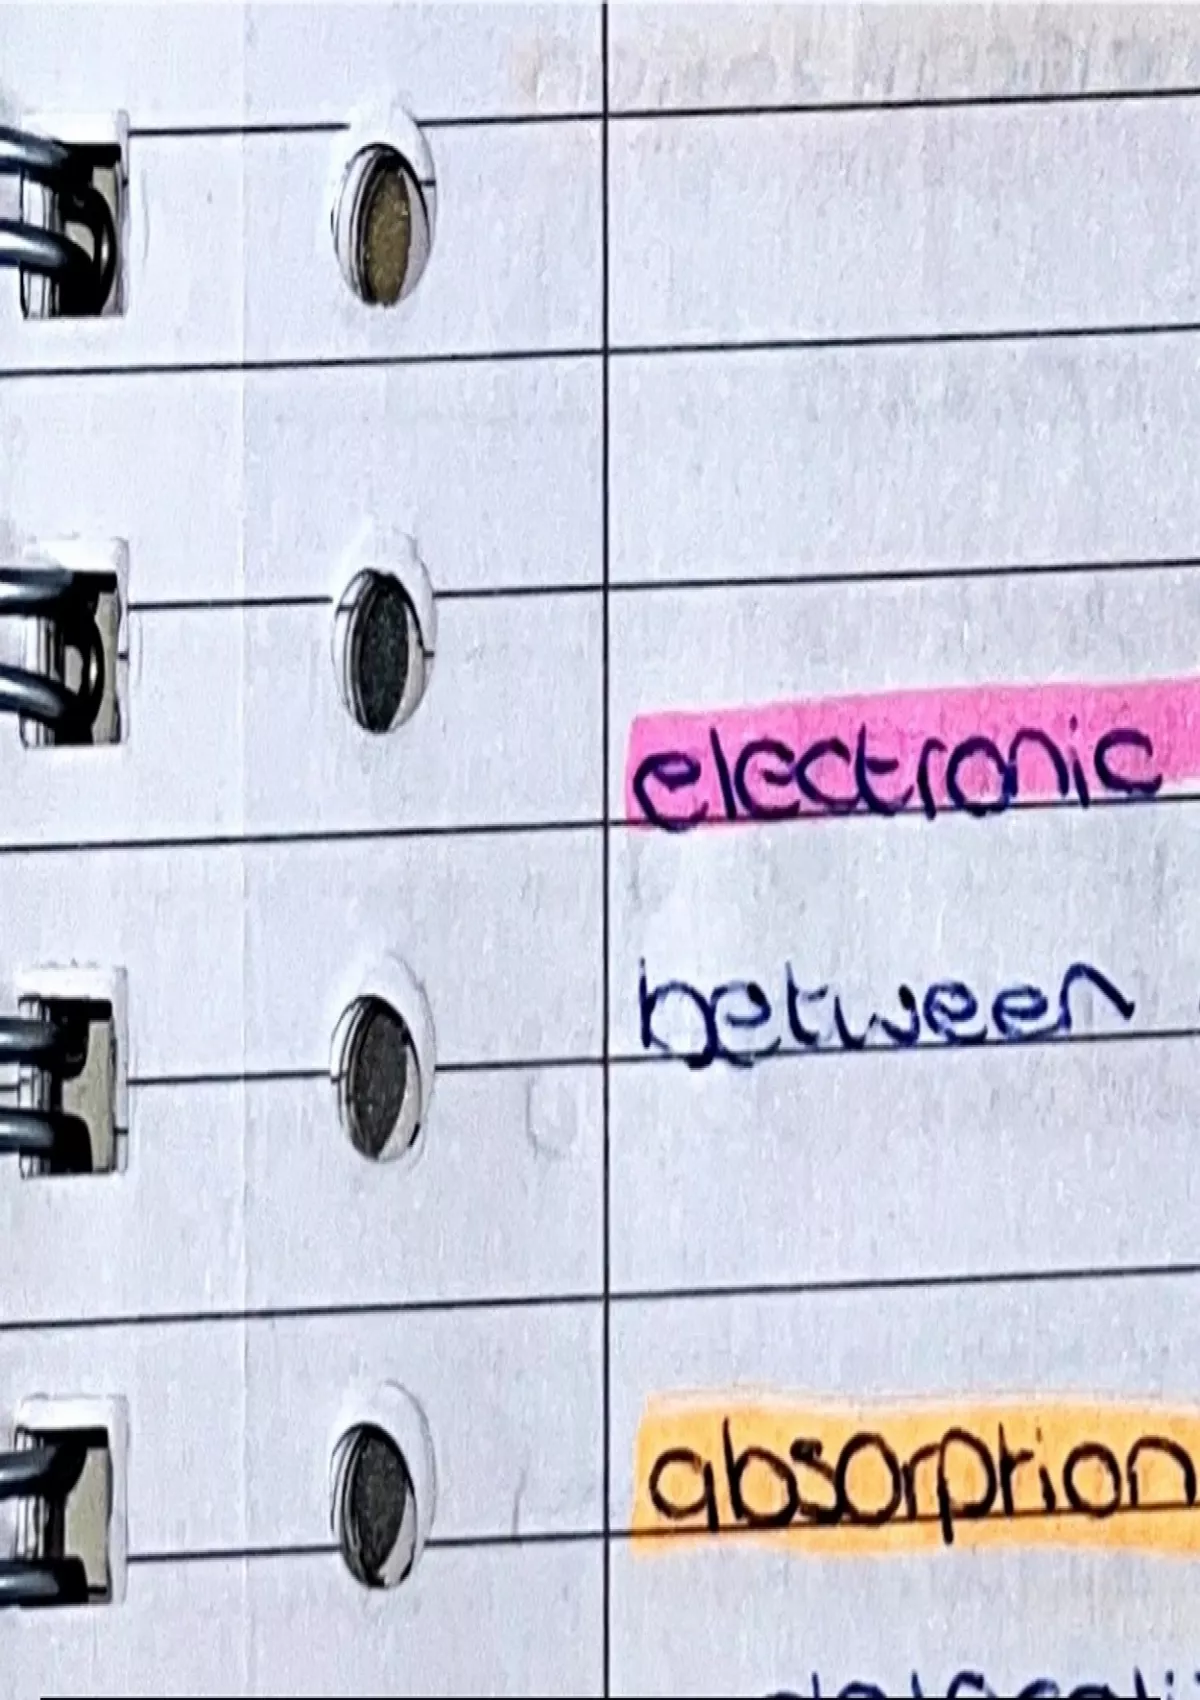 electronic
between
absorption